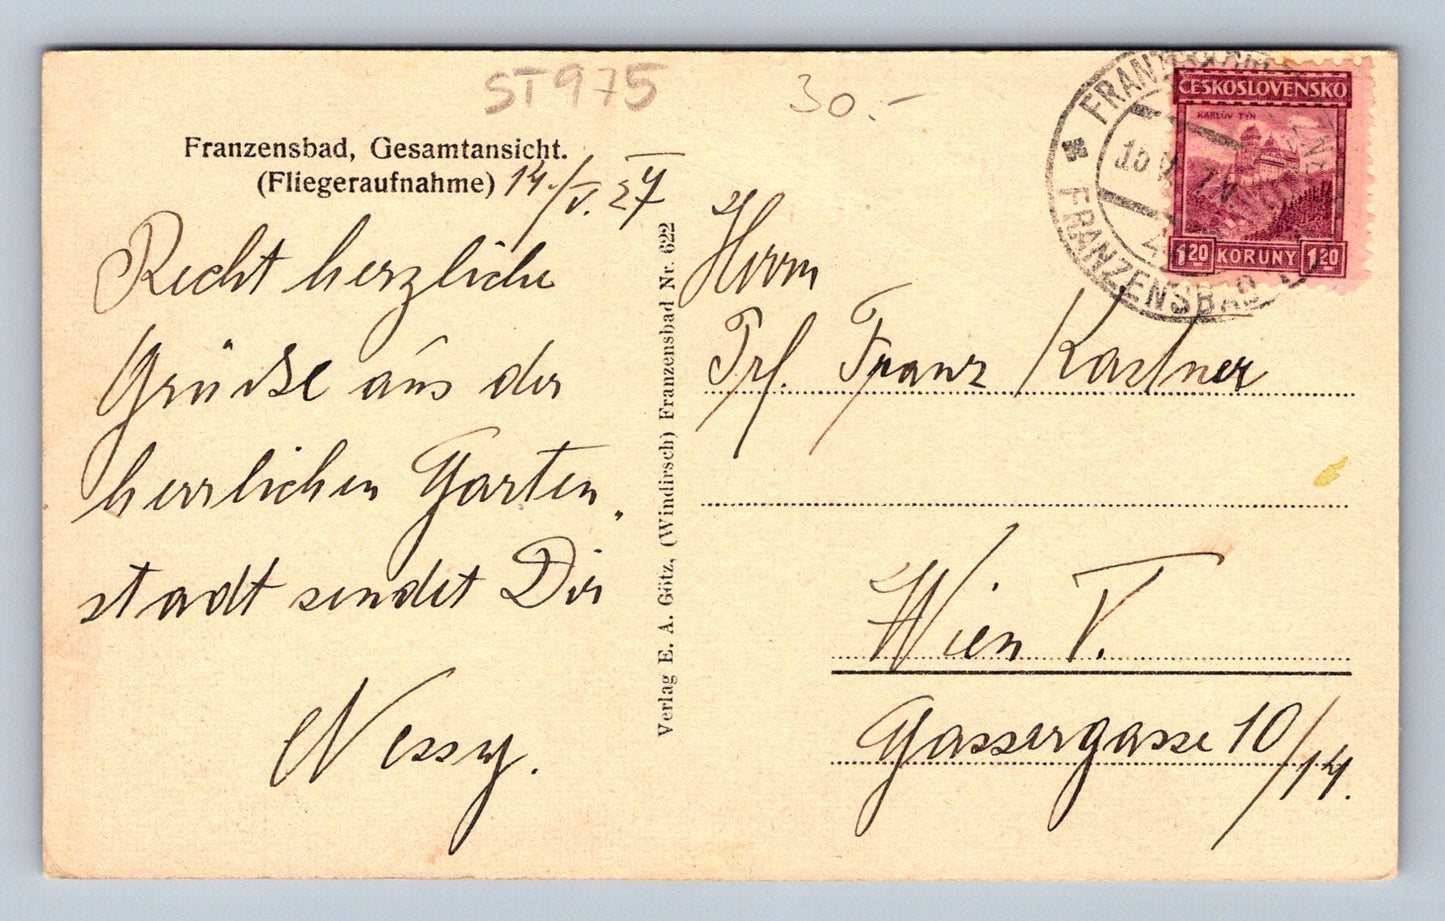 ST975
30.-
Franzensbad, Gesamtansicht.
(Fliegeraufnahme) 14./V. 27
Recht herzliche
Grüsse aus der
herrlichen Garten-
stadt sendet Dir
Nessy.
Verlag E. A. Götz, (Windirsch) Franzensbad Nr. 622
ČESKOSLOVENSKO
KARLŮV TÝN
1.20 KORUNY 1.20
FRANZENSBAD
Herrn
Prf. Franz Kastner
Wien V.
Gassergasse 10/14.